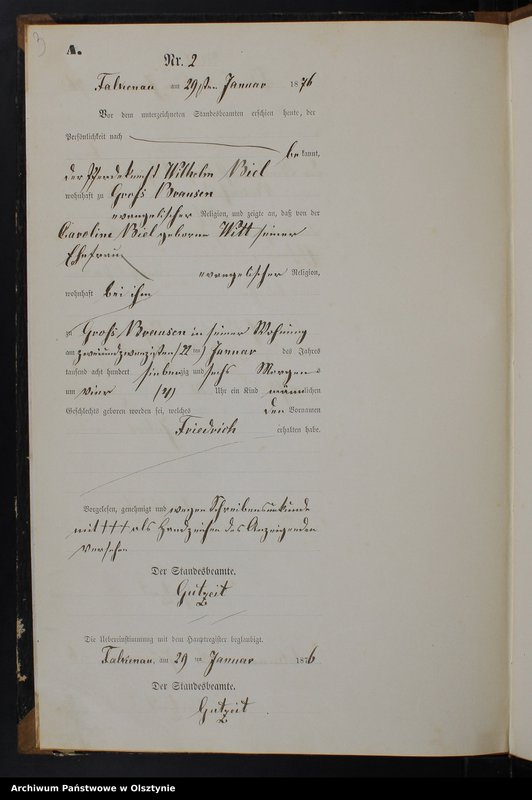 A.
Nr. 2
Falkenau am 29sten Januar 1876
Vor dem unterzeichneten Standesbeamten erschien heute, der
Persönlichkeit nach
bekannt,
der Pferdeknecht Wilhelm Biel
wohnhaft zu Groß Brausen
evangelischer Religion, und zeigte an, daß von der
Caroline Biel geborene Witt seiner
Ehefrau
evangelischer Religion,
wohnhaft bei ihm
zu Groß Brausen in seiner Wohnung
am zweiundzwanzigsten (22ten) Januar des Jahres
tausend acht hundert siebenzig und sechs Morgens
um vier (4) Uhr ein Kind männlichen
Geschlechts geboren worden sei, welches den Vornamen
Friedrich erhalten habe.
Vorgelesen, genehmigt und wegen Schreibensunkunde
mit +++ als Handzeichen des Anzeigenden
versehen
Der Standesbeamte.
Gutzeit
Die Uebereinstimmung mit dem Hauptregister beglaubigt.
Falkenau, am 29ten Januar 1876
Der Standesbeamte.
Gutzeit
Archiwum Państwowe w Olsztynie